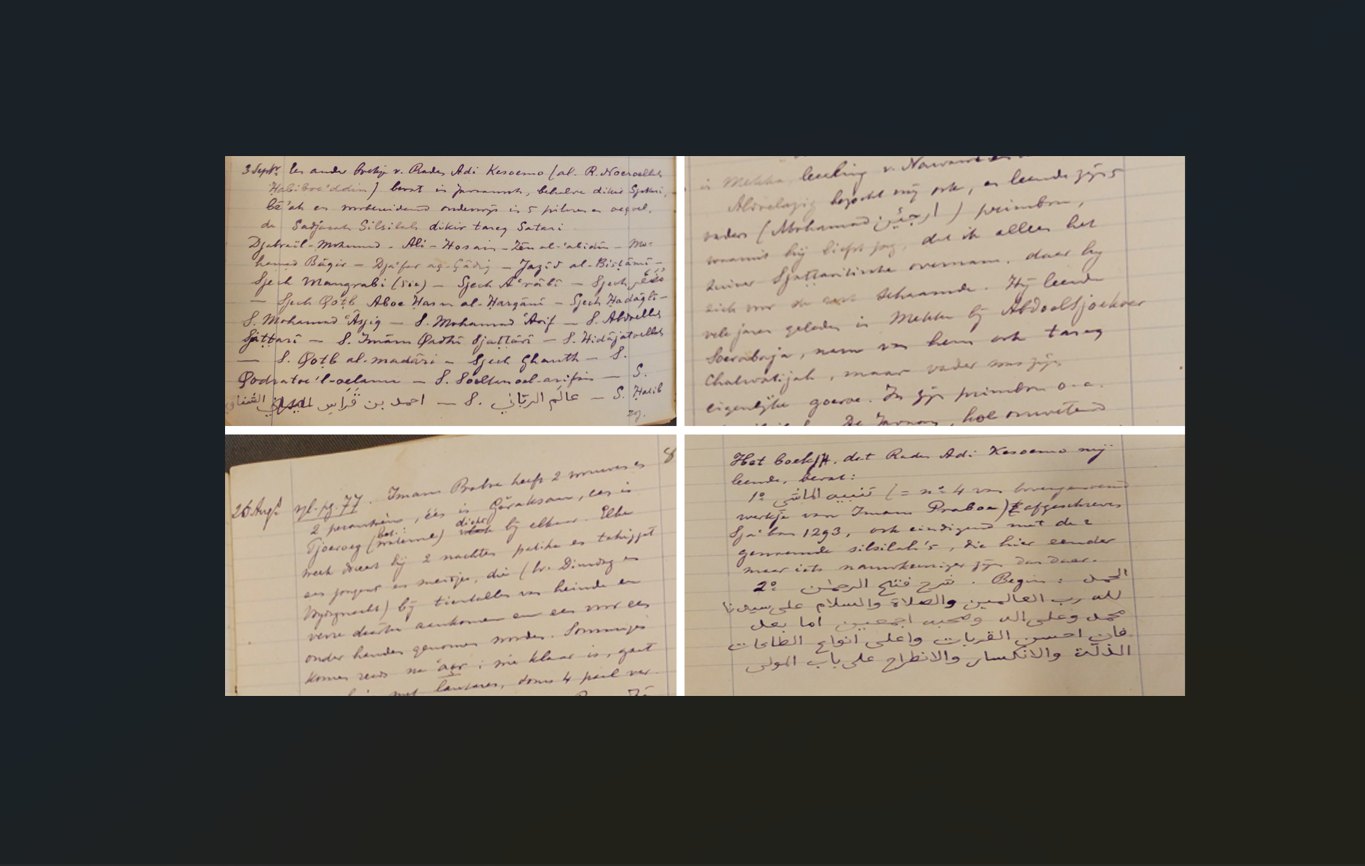 3 Sept. Een ander boekje v. Raden Adi Kesoemo (al. R. Noeroellah
Habiboe'ddin) bevat in javaansch, behalve dikir Sjattari,
bē'ah en voorbereidend onderwijs in 5
de Sadjarah Silsilah dikir tareq Satari
Djabraīl - Mohamad - Ali - Hosain - Zēn al-'abidīn - Mo-
hamad Bāqir - Dja'far aç-Çādiq - Jazīd al-Bisṭāmī -
Sjech Mangrabi (sic) - Sjech A'rābī - Sjech
- Sjech Qoṭb Aboe Hasan al-Harqānī - Sjech Hadāqlī -
S. Mohamad 'Āsjiq - S. Mohamad 'Ārif - S. Abdoellah
Sjaṭṭarī - S. Imām Qadhī Sjaṭṭārī - S. Hidājatoellah
- S. Qoṭb al-madāri - Sjech Ghauth - S.
Qodratoe'l-oelama - S. Soelṭanoel-arifin - S.
عالم الربّاني - S. احمد بن قراس الشنّاوي - S. Habib
in Mekka leerling v. Nawawi
Abdoelagig bezocht mij ook, en leende zijns
vaders (Mohamad ارجين) primbon,
waarmit hij liefst zag, dat ik alleen het
zuiver Sjaṭṭaritische overnam, daar hij
zich voor de rest schaamde. Hij leerde
vele jaren geleden in Mekka bij Abdoelsjoekoer
Soerabaja, nam van hem ook tareq
Chalwatijah, maar vader was zijn
eigenlijke goeroe. In zijn primbon o.a.
De Javaan, hoe onwetend
25 Aug. vgl. pg. 77. Imam Prabu heeft 2 vrouwen en
2 één is Gāraksan, één is
Tjoeroeg dichter bij elkaar. Elke
week dreef hij 2 nachten
een jongen en meisje, die (br. Dinsdag en
Vrijdagnacht) bij tientallen van heinde en
verre daartoe aankomen en een voor een
onder handen genomen worden. Sommigen
komen reeds na 'açr; wie klaar is, gaat
met lantaren, soms 4 paal ver
Het boekje, dat Raden Adi Kesoemo mij
leende, bevat:
1º تنبيه الماشي (= nº 4 van bovengenoemd
werkje van Imam Praboe) afgeschreven
Sja'ban 1293, ook eindigend met de 2
genoemde silsilah's, die hier eender
maar iets nauwkeuriger zijn dan daar.
2º شرح فتح الرحمن. Begin: الحمد
لله رب العالمين والصلاة والسلام على سيدنا
محمد وعلى اله وصحبه اجمعين اما بعد
فان احسن القربات واعلى انواع الطاعات
الذلة والانكسار والانطراح على باب المولى